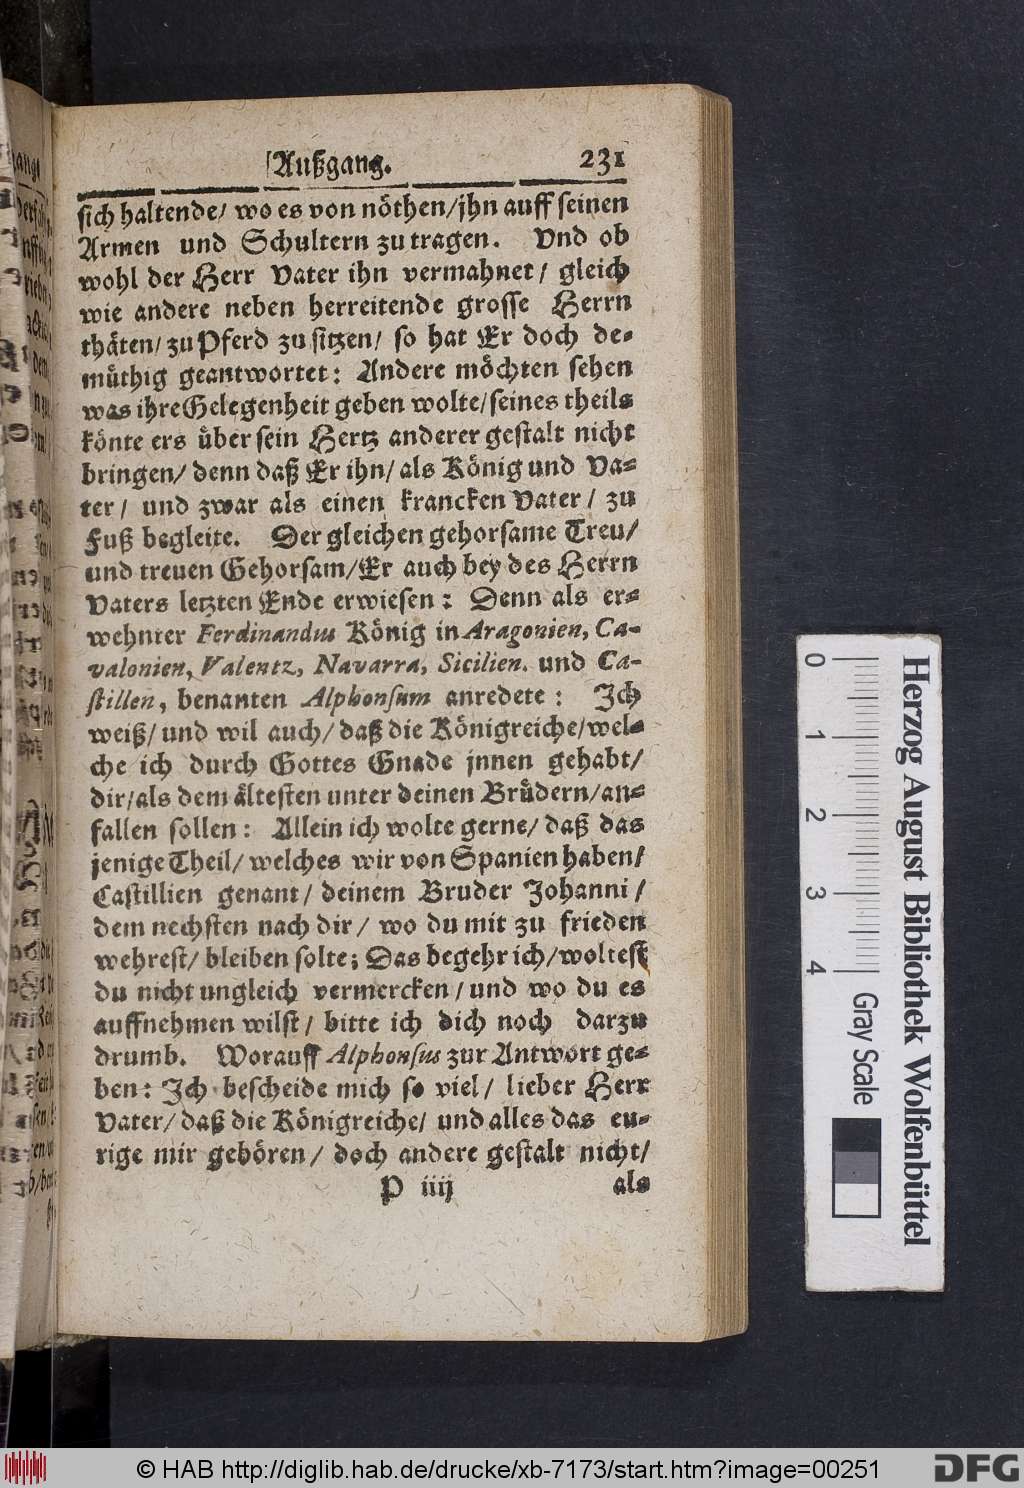 Außgang. 231
sich haltende/ wo es von nöthen/jhn auff seinen
Armen und Schultern zu tragen. Vnd ob
wohl der Herr Vater ihn vermahnet/ gleich
wie andere neben herreitende grosse Herrn
thäten/ zu Pferd zu sitzen/ so hat Er doch de-
müthig geantwortet: Andere möchten sehen
was ihre Gelegenheit geben wolte/seines theils
könte ers über sein Hertz anderer gestalt nicht
bringen/ denn daß Er ihn/ als König und Va-
ter/ und zwar als einen krancken Vater/ zu
Fuß begleite. Der gleichen gehorsame Treu/
und treuen Gehorsam/Er auch bey des Herrn
Vaters letzten Ende erwiesen: Denn als er-
wehnter Ferdinandus König in Aragonien, Ca-
valonien, Valentz, Navarra, Sicilien. und Ca-
stillen, benanten Alphonsum anredete: Jch
weiß/ und wil auch/ daß die Königreiche/wel-
che ich durch Gottes Gnade jnnen gehabt/
dir/als dem ältesten unter deinen Brüdern/an-
fallen sollen: Allein ich wolte gerne/ daß das
jenige Theil/ welches wir von Spanien haben/
Castillien genant/ deinem Bruder Johanni/
dem nechsten nach dir/ wo du mit zu frieden
wehrest/ bleiben solte; Das begehr ich/woltest
du nicht ungleich vermercken/und wo du es
auffnehmen wilst/ bitte ich dich noch darzu
drumb. Worauff Alphonsus zur Antwort ge-
ben: Jch bescheide mich so viel/ lieber Herr
Vater/ daß die Königreiche/ und alles das eu-
rige mir gebören/ doch andere gestalt nicht/
P iiij als
0 1 2 3 4 Gray Scale
Herzog August Bibliothek Wolfenbüttel
© HAB http://diglib.hab.de/drucke/xb-7173/start.htm?image=00251
DFG